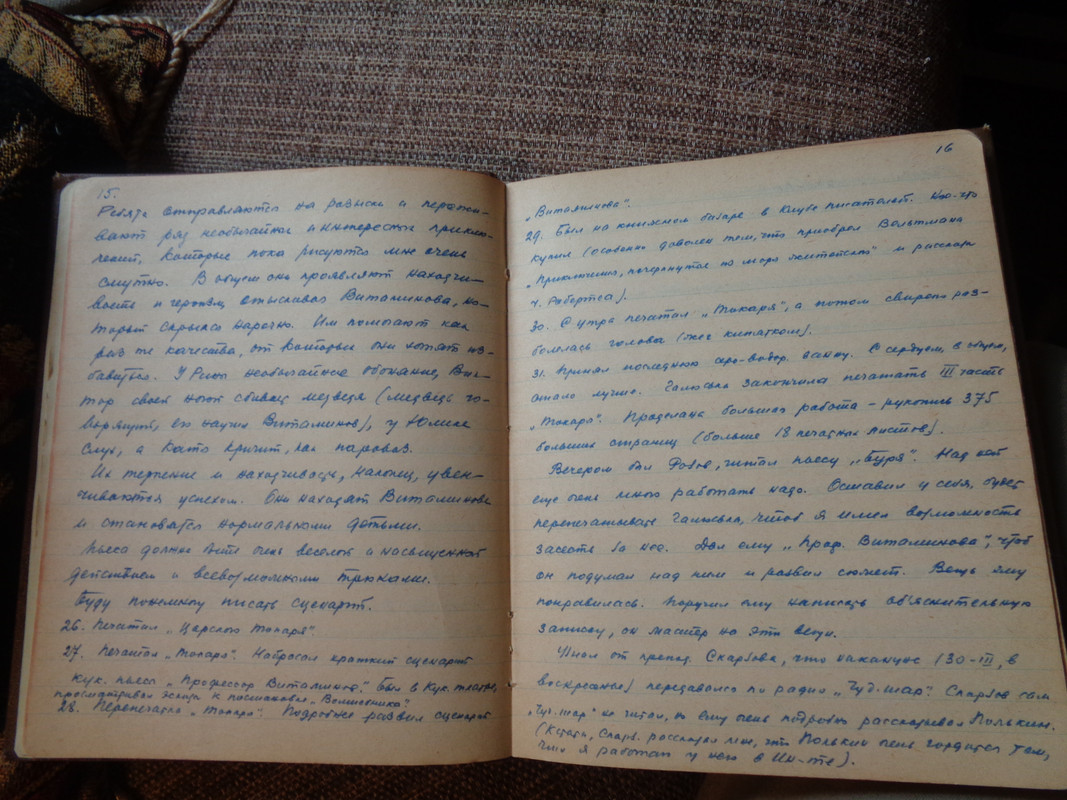 15.
Ребята отправляются на розыски и пережи-
вают ряд необычайных и интересных приклю-
чений, которые пока рисуются мне очень
смутно. В общем они проявляют находчи-
вость и отыскивая Витаминова, ко-
торый скрылся нарочно. Им помогают как
раз те качества, от которых они хотят из-
бавиться. У Рины необычайное обоняние, Вик-
тор своей ногой сбивает медведя (медведь го-
ворящий, его научил Витаминов), у Юмика
слух, а Катя кричит, как паровоз.
Их терпение и находчивость, наконец, увен-
чиваются успехом. Они находят Витаминова
и становятся нормальными детьми.
Пьеса должна быть очень веселой и насыщенной
действием и всевозможными трюками.
Буду понемногу писать сценарий.
26. Печатал „Царского токаря".
27. Печатал „Токаря". Набросал краткий сценарий
кук. пьесы „Профессор Витаминов." Был в Кук. театре,
просматривал эскизы к постановке „Волшебника".
28. Перепечатка „Токаря". Подробнее развил сценарий
16
„Витаминова".
29. Был на книжном базаре в Клубе писателей. Кое-что
купил (особенно доволен тем, что приобрел Вельтмана
„Приключения, почерпнутые из моря житейского" и рассказы
Ч. Робертса).
30. С утра печатал „Токаря", а потом свирепо раз-
болелась голова (жег кипятком).
31. Принял последнюю серо-водор. ванну. С сердцем, в общем,
стало лучше. Галюська закончила печатать III часть
„Токаря". Проделана большая работа – рукопись 375
больших страниц (больше 18 печатных листов).
Вечером был читал пьесу „Буря". Над ней
еще очень много работать надо. Оставил у себя, будет
перепечатывать Галюська, чтоб я имел возможность
засесть за нее. Дал ему „Проф. Витаминова", чтоб
он подумал над ним и развил сюжет. Вещь ему
понравилась. Поручил ему написать об'яснительную
записку, он мастер на эти вещи.
Узнал от препод. Скарбова, что накануне (30-III, в
воскресенье) передавался по радио „Чуд. шар". Скарбов сам
„Чуд. шар" не читал, но ему очень подробно рассказывал Полькин.
(Кстати, Скарб. рассказал мне, что Полькин очень гордится тем,
что я работал у него в Ин-те).